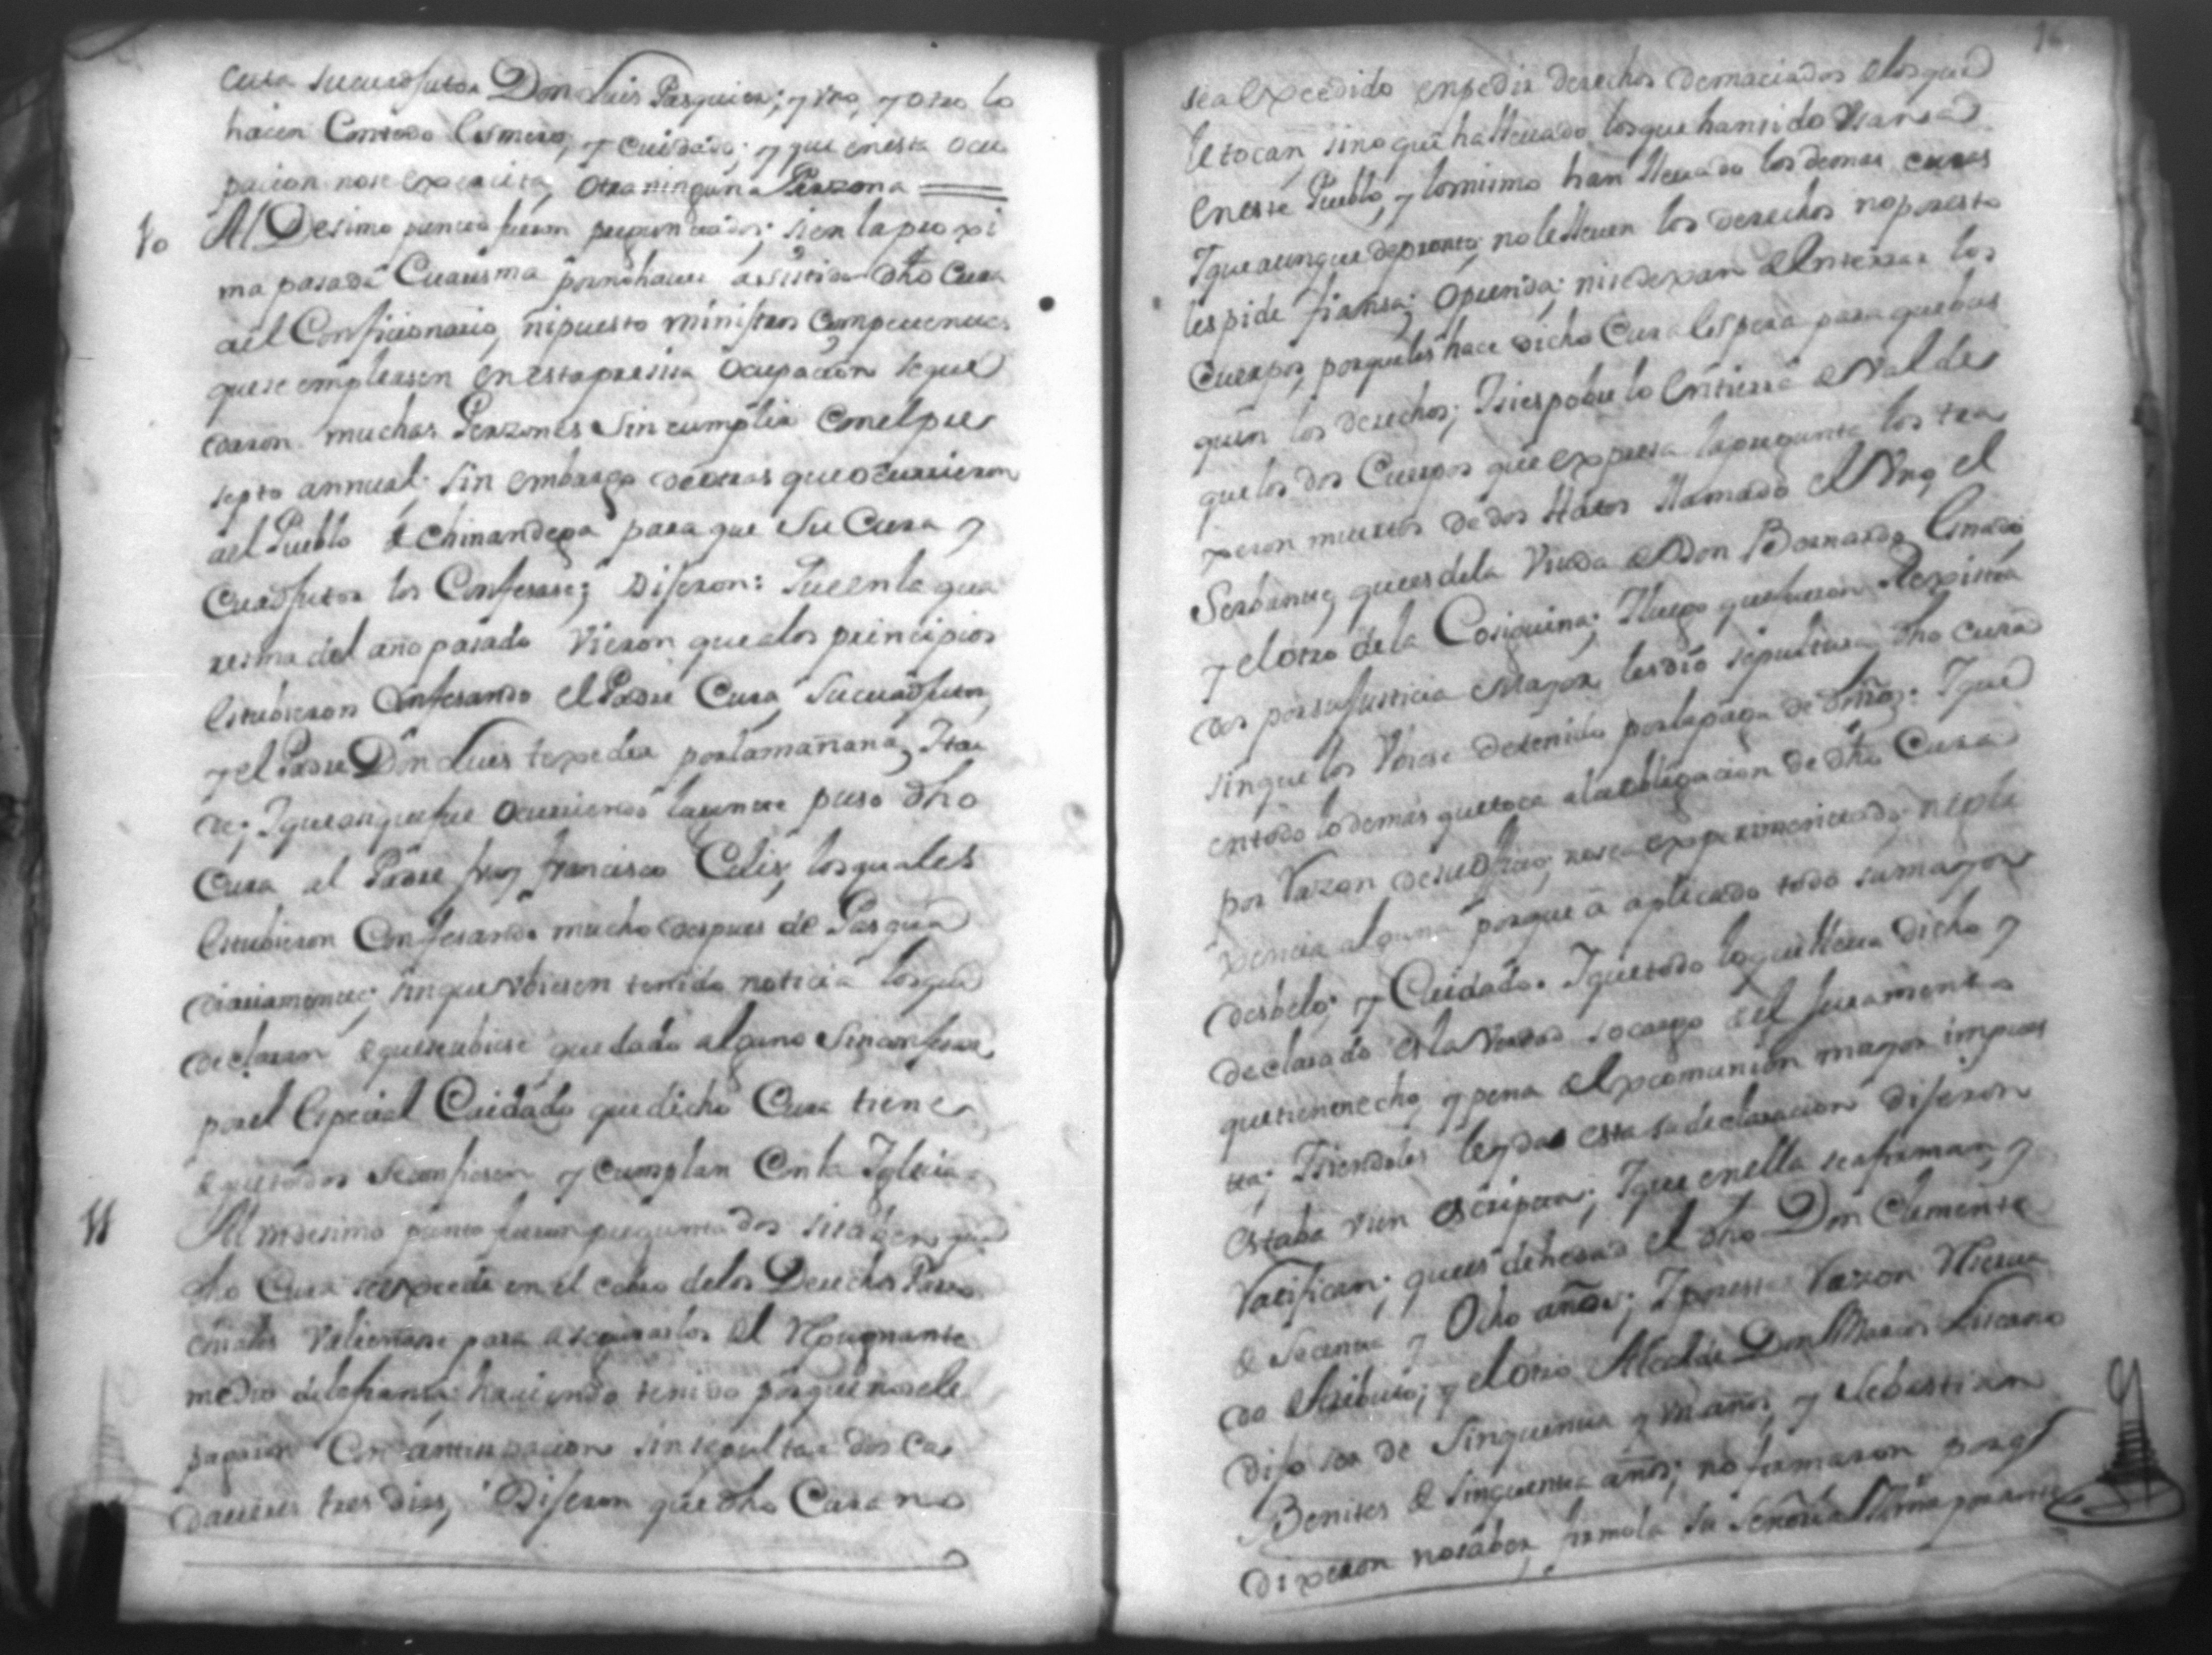 Cura su cuadjutor Don Luis Pasquier; y vno, y otro lo
hacen Con todo Esmero, y cuidado; y que en esta ocu
pacion no se exercita, otra ninguna Perzona
10 Al Desimo punto fueron preguntados; si en la proxi
ma pasada Cuaresma por no hauer assistido dho Cura
ael Conficionario, ni puesto ministros Competentes
que se empleasen en esta presisa Ocupacion se que
daron muchas Perzonas sin cumplir con el pre
septo annual; sin embargo de otras que ocurrieron
ael Pueblo de Chinandega para que su Cura y
Cuadjutor los Confesase; Dijeron: Que en la qua
resma del año pasado Vieron que a los principios
Estubieron Confesando el Padre Cura, su cuadjutor,
y el Padre Don Luis texeda por la mañana, y tar
de; Y que aun que fue ocurriendo la gente puso dho
Cura al Padre fray francisco Celis, los quales
Estubieron Confesando mucho despues de Pasqua
diariamente; sin que vbiesen tenido noticia los que
declaran de que se ubiese quedado alguno sin confesar
por el Especial Cuidado que dicho Cura tiene
de que todos se confiesen y cumplan Con la Iglecia
11 Al vndesimo punto fueron preguntados si saben que
dho Cura se expcede en el cobro de los Derechos Parro
chiales valiendose para asegurarlos del Repugnante
medio de la fianza: haciendo tenido porque no se le
pagaron Con anticipacion sin sepultar dos Ca
daueres tres dias, Dijeron que dho Cura no
sea expcedido en pedir derechos demaciados a los que
le tocan, sino que ha lleuado los que han sido Vsansa
en este Pueblo, y lo mismo han lleuado los demas curas
Y que aunque de pronto no le lleuen los derechos no por esto
les pide fianza; o prenda; ni se dexan de enterrar los
Cuerpos, porque les hace dicho Cura Espera para que bus
quen los derechos; Y si es pobre lo Entierra de valde
que los dos Cuerpos que expresa la pregunta los tra
xeron muertos de dos Hatos llamado el Vno, el
que es de la Viuda de Don Bernardo
y el otro de la Cosiguina; Y luego que fueron Rexistra
dos por su Justicia Mayor les dio sepultura dho Cura
sin que los Vbiese detenido por la paga de dros. Y que
en todo lo demas que toca a la obligacion de dho Cura
por Razon de su oficio, no sea experimentado
alguna porque a aplicado todo su mayor
desbelo; y Cuidado. Y que todo lo que lleua dicho y
declarado es la Verdad so cargo del Juramento
que tiene hecho, y pena de Expcomunion mayor impues
ta; Y siendoles leyda esta su declaracion dijeron
estaba vien escripta; Y que en ella se afirman, y
Ratifican; que es de hedad el dho Don Clemente
de Secenta y Ocho años; Y por esta Razon
de tributo; y el otro Alcalde Don Marcos
dijo ser de Sinquenta y vn años, y Sebastian
Benites de Sinquenta años; no firmaron porq.
dixeron no saber, firmola su Señoria Yllma por ante